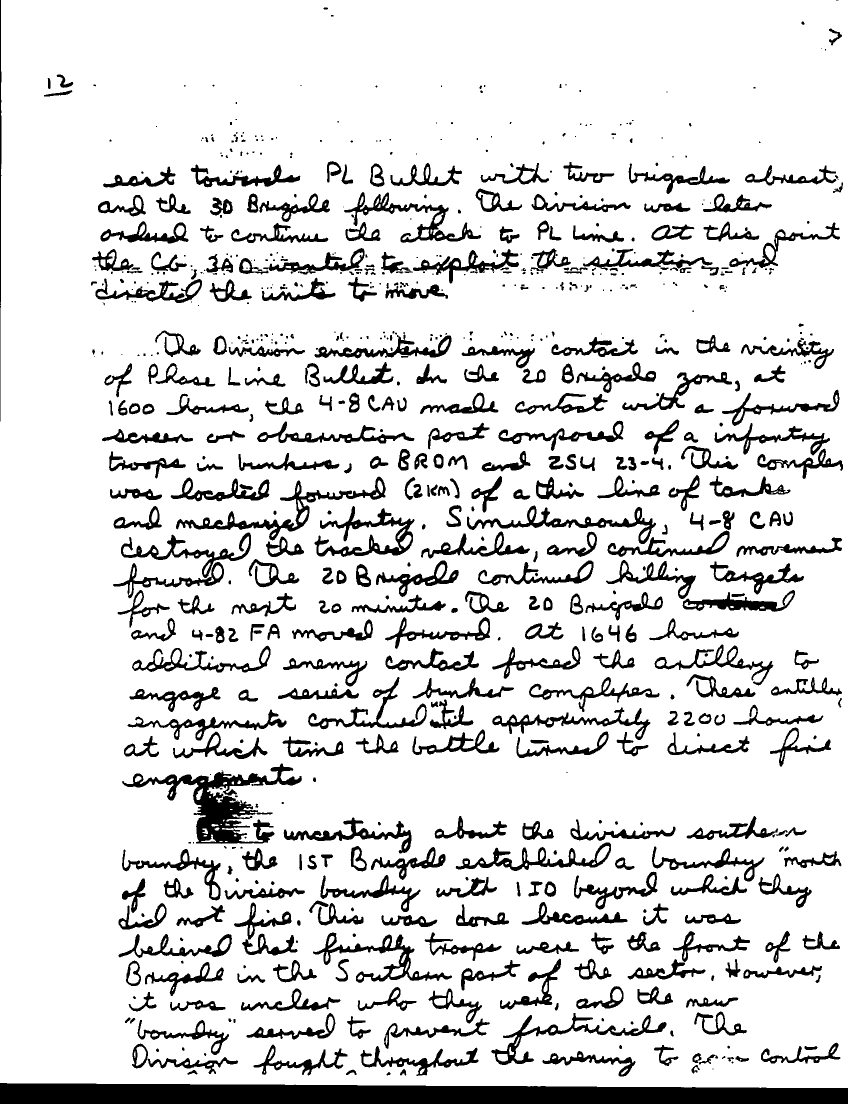 12
east towards PL Bullet with two brigades abreast,
and the 3D Brigade following. The Division was later
ordered to continue the attack to PL Lime. At this point
the CG, 3AD wanted to exploit the situation, and
directed the units to move.
The Division encountered enemy contact in the vicinity
of Phase Line Bullet. In the 2D Brigade zone, at
1600 hours, the 4-8 CAV made contact with a forward
screen or observation post composed of a infantry
troops in bunkers, a BRDM and ZSU 23-4. This complex
was located forward (2KM) of a thin line of tanks
and mechanized infantry. Simultaneously, 4-8 CAV
destroyed the tracked vehicles, and continued movement
forward. The 2D Brigade continued killing targets
for the next 20 minutes. The 2D Brigade
and 4-82 FA moved forward. At 1646 hours
additional enemy contact forced the artillery to
engage a series of bunker complexes. These artillery
engagements continued until approximately 2200 hours
at which time the battle turned to direct fire
engagements.
Due to uncertainty about the division southern
boundry, the 1ST Brigade established a boundry "north
of the Division boundry with 1ID beyond which they
did not fire. This was done because it was
believed that friendly troops were to the front of the
Brigade in the Southern part of the sector. However,
it was unclear who they were, and the new
"boundry" served to prevent fratricide. The
Division fought throughout the evening to gain control